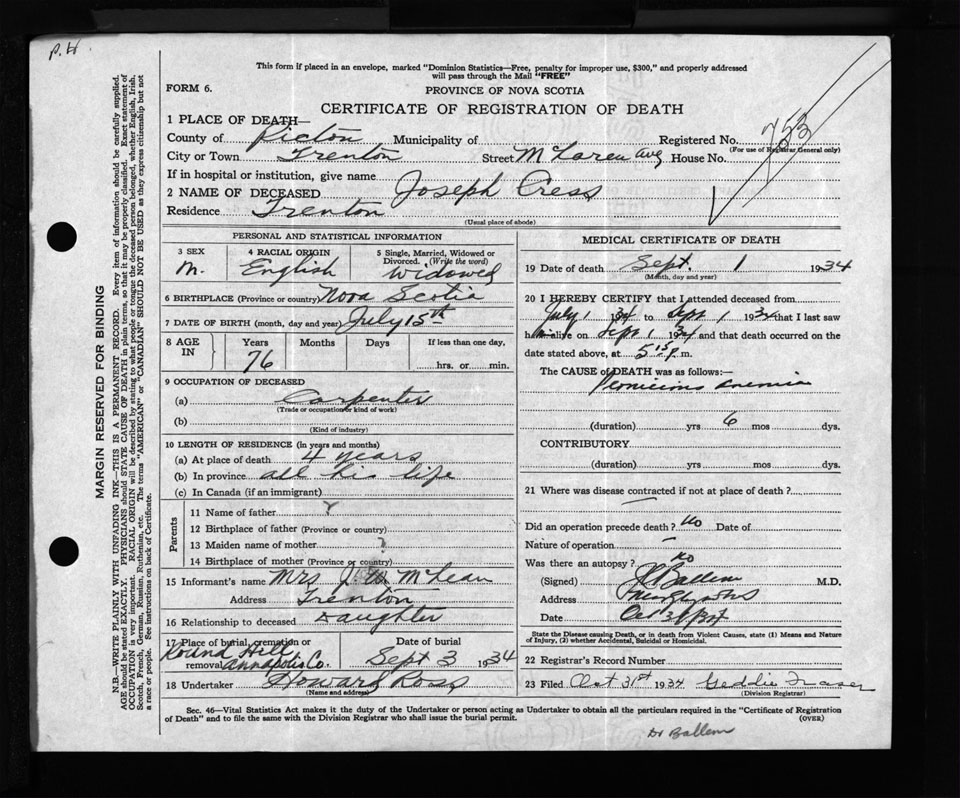 P.H
This form if placed in an envelope, marked "Dominion Statistics—Free, penalty for improper use, $300," and properly addressed
will pass through the Mail "FREE"
FORM 6.
PROVINCE OF NOVA SCOTIA
CERTIFICATE OF REGISTRATION OF DEATH
1 PLACE OF DEATH—
County of Pictou Municipality of Registered No. 753
(For use of Registrar General only)
City or Town Trenton Street McLaren Ave House No.
If in hospital or institution, give name
2 NAME OF DECEASED Joseph Cress
Residence Trenton
(Usual place of abode)
PERSONAL AND STATISTICAL INFORMATION
3 SEX 4 RACIAL ORIGIN 5 Single, Married, Widowed or Divorced. (Write the word)
M. English Widowed
6 BIRTHPLACE (Province or country) Nova Scotia
7 DATE OF BIRTH (month, day and year) July 15th
8 AGE IN Years Months Days If less than one day,
76 hrs. or min.
9 OCCUPATION OF DECEASED
(a) Carpenter
(Trade or occupation or kind of work)
(b)
(Kind of industry)
10 LENGTH OF RESIDENCE (in years and months)
(a) At place of death 4 years
(b) In province all his life
(c) In Canada (if an immigrant)
Parents
11 Name of father ?
12 Birthplace of father (Province or country)
13 Maiden name of mother ?
14 Birthplace of mother (Province or country)
15 Informant's name Mrs J. W McLean
Address Trenton
16 Relationship to deceased Daughter
17 Place of burial, cremation or removal Round Hill Annapolis Co.
Date of burial
Sept 3 1934
18 Undertaker Howard Ross
(Name and address)
MEDICAL CERTIFICATE OF DEATH
19 Date of death Sept. 1 1934
(Month, day and year)
20 I HEREBY CERTIFY that I attended deceased from
July 1 34 to Sept 1 1934 that I last saw
him alive on Sept 1 1934 and that death occurred on the
date stated above, at 5:15 P. m.
The CAUSE of DEATH was as follows:—
Pernicious Anemia
(duration) yrs 6 mos dys.
CONTRIBUTORY
(duration) yrs mos dys.
21 Where was disease contracted if not at place of death?
Did an operation precede death? No Date of
Nature of operation —
Was there an autopsy? No
(Signed) Ballem M.D.
Address
Date Oct 31
State the Disease causing Death, or in death from Violent Causes, state (1) Means and Nature
of Injury, (2) whether Accidental, Suicidal or Homicidal.
22 Registrar's Record Number
23 Filed Oct 31st 1934 Geddie Fraser
(Division Registrar)
Sec. 46—Vital Statistics Act makes it the duty of the Undertaker or person acting as Undertaker to obtain all the particulars required in the "Certificate of Registration
of Death" and to file the same with the Division Registrar who shall issue the burial permit.
(OVER)
Dr Ballem
MARGIN RESERVED FOR BINDING
N.B.—WRITE PLAINLY WITH UNFADING INK—THIS IS A PERMANENT RECORD. Every item of information should be carefully supplied.
AGE should be stated EXACTLY. PHYSICIANS should STATE CAUSE OF DEATH in plain terms, so that it may be properly classified. Exact statement of
OCCUPATION is very important. RACIAL ORIGIN will be described by stating to what people or tongue the deceased person belonged, whether English, Irish,
Scotch, French, German, Russian, Ruthenian, etc. The terms "AMERICAN" or "CANADIAN" SHOULD NOT BE USED as they express citizenship but not
a race or people. See instructions on back of Certificate.